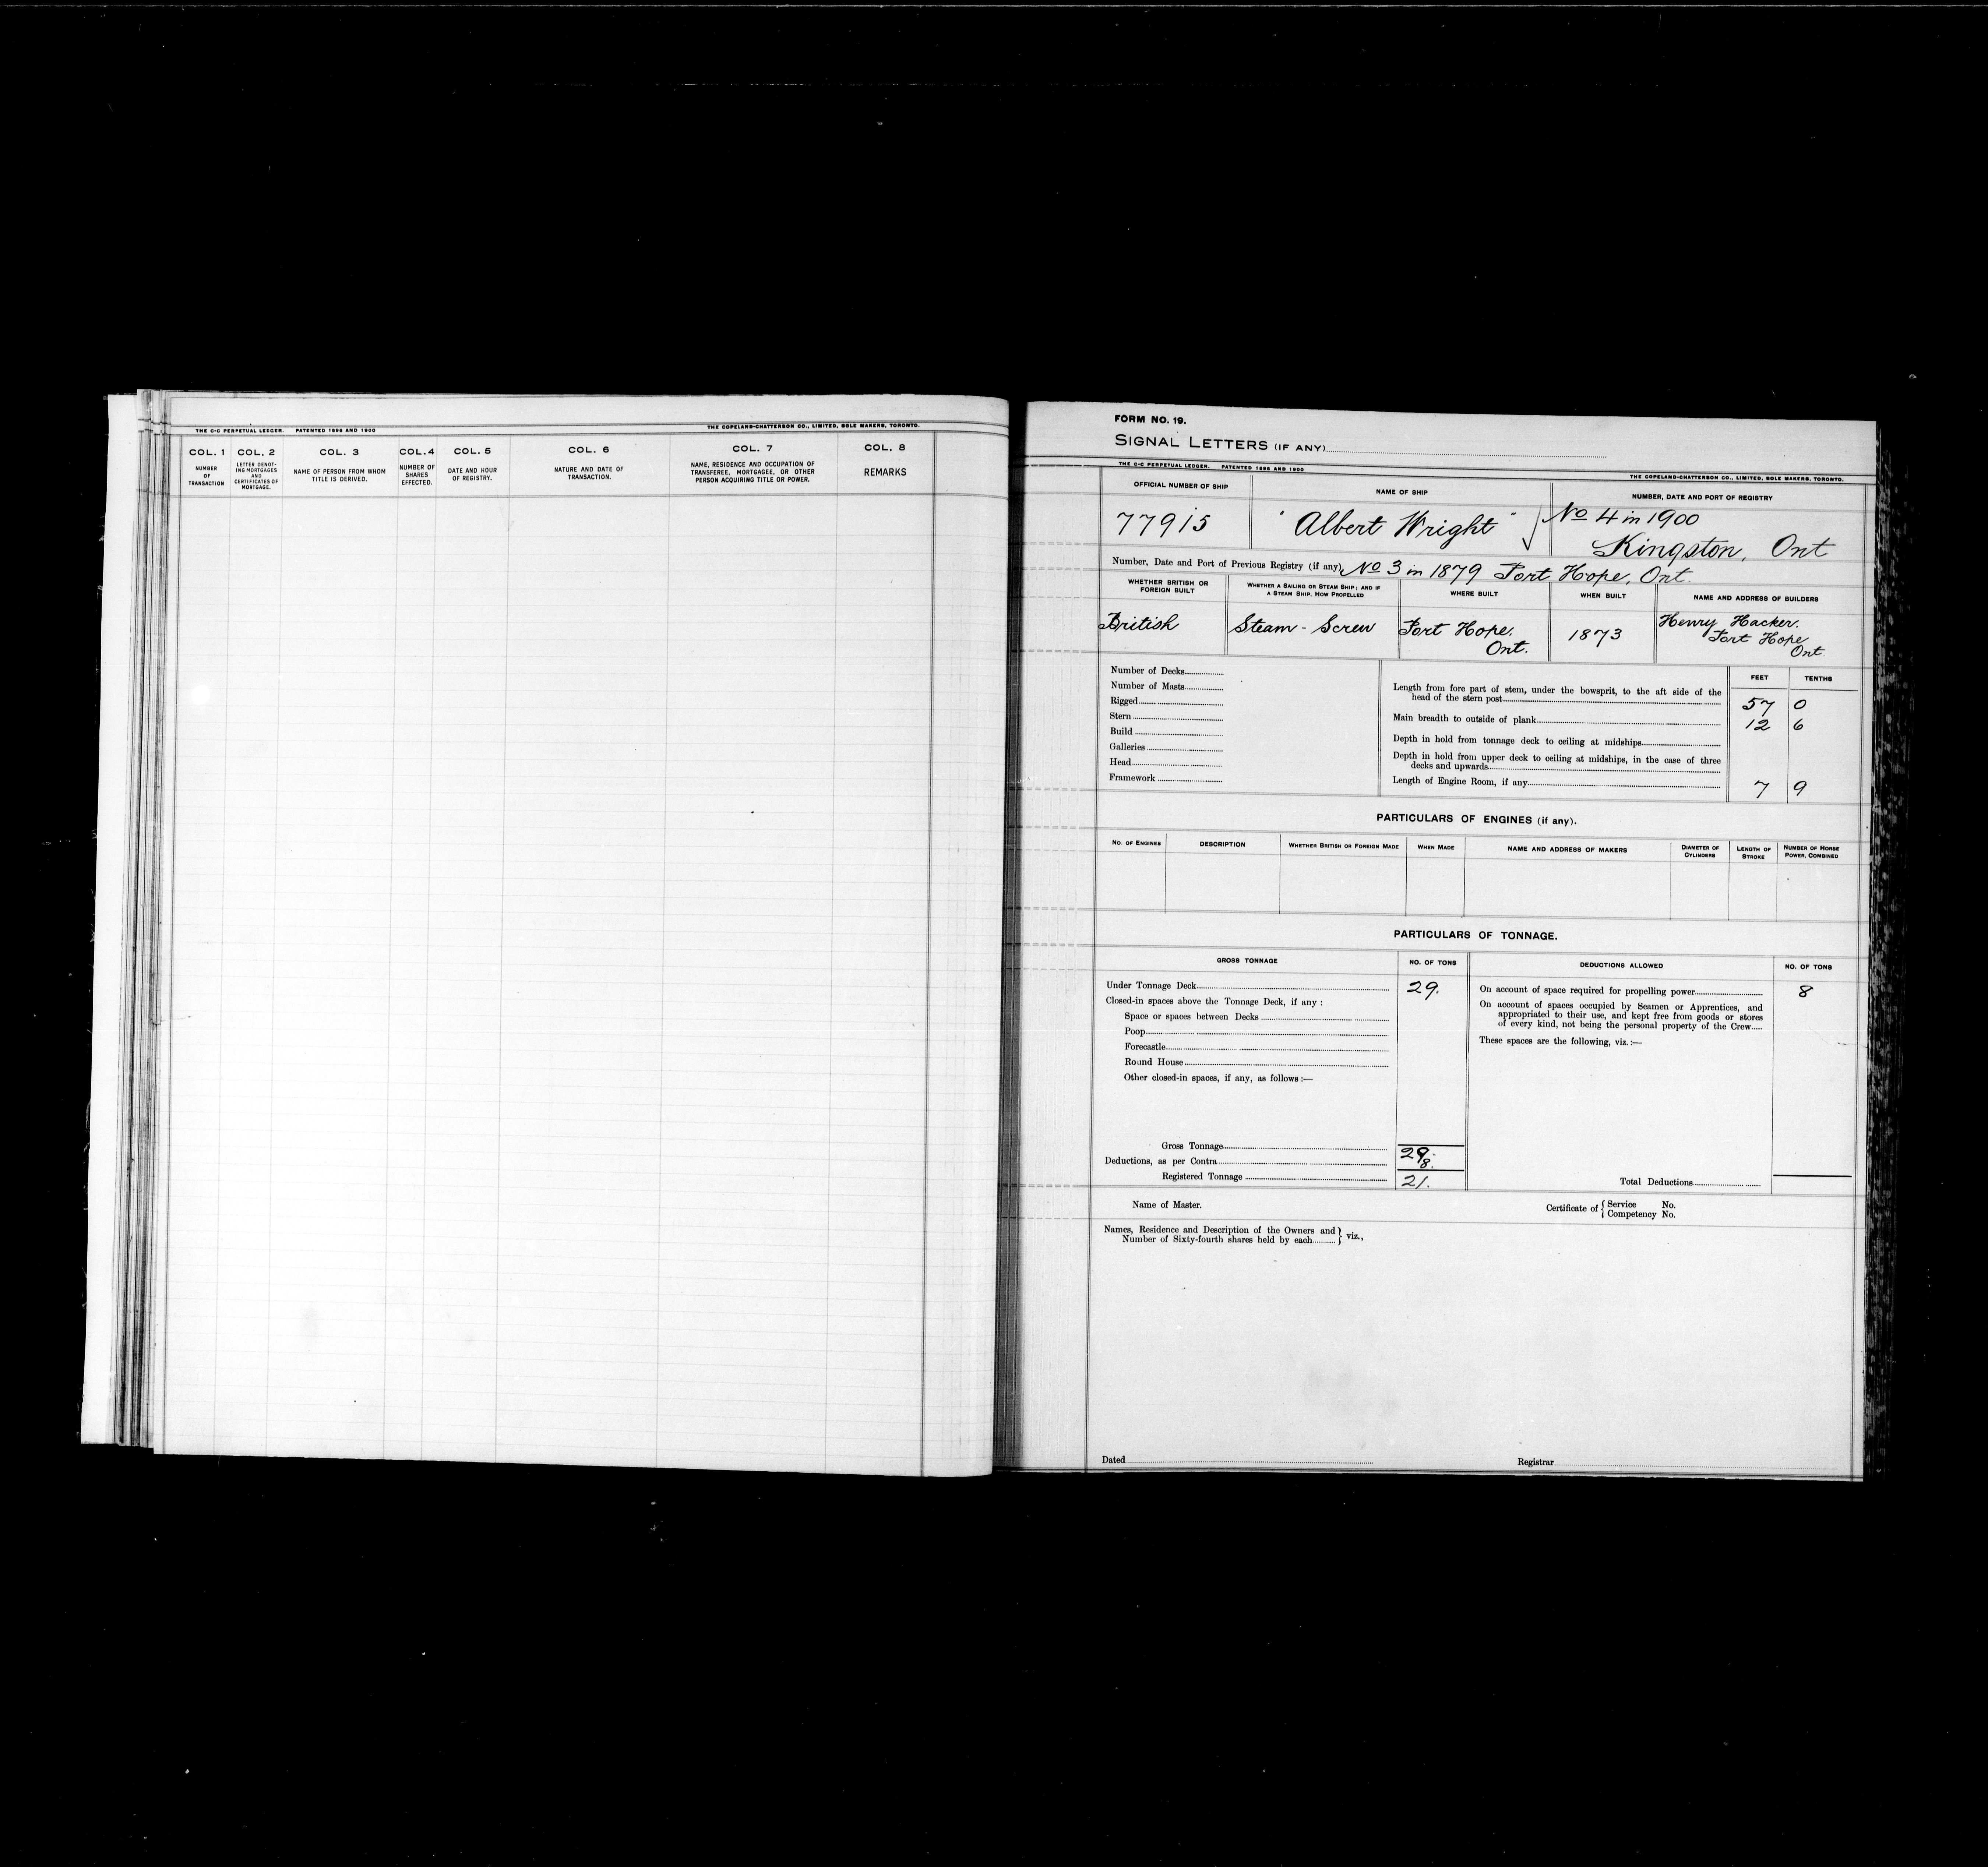 THE C-C PERPETUAL LEDGER. PATENTED 1896 AND 1900
THE COPELAND-CHATTERSON CO., LIMITED, SOLE MAKERS, TORONTO.
COL. 1 COL. 2 COL. 3 COL. 4 COL. 5 COL. 6 COL. 7 COL. 8
NUMBER OF TRANSACTION
LETTER DENOTING MORTGAGES AND CERTIFICATES OF MORTGAGE.
NAME OF PERSON FROM WHOM TITLE IS DERIVED.
NUMBER OF SHARES EFFECTED.
DATE AND HOUR OF REGISTRY.
NATURE AND DATE OF TRANSACTION.
NAME, RESIDENCE AND OCCUPATION OF TRANSFEREE, MORTGAGEE, OR OTHER PERSON ACQUIRING TITLE OR POWER.
REMARKS
FORM NO. 19.
SIGNAL LETTERS (IF ANY)
THE C-C PERPETUAL LEDGER. PATENTED 1896 AND 1900
THE COPELAND-CHATTERSON CO., LIMITED, SOLE MAKERS, TORONTO.
OFFICIAL NUMBER OF SHIP NAME OF SHIP NUMBER, DATE AND PORT OF REGISTRY
77915 "Albert Wright" No 4 in 1900
Kingston, Ont
Number, Date and Port of Previous Registry (if any) No 3 in 1879 Port Hope, Ont.
WHETHER BRITISH OR FOREIGN BUILT
WHETHER A SAILING OR STEAM SHIP; AND IF A STEAM SHIP, HOW PROPELLED
WHERE BUILT WHEN BUILT NAME AND ADDRESS OF BUILDERS
British Steam - Screw Port Hope. 1873 Henry Hacker.
Ont. Port Hope
Ont.
FEET TENTHS
Number of Decks
Number of Masts
Rigged
Stern
Build
Galleries
Head
Framework
Length from fore part of stem, under the bowsprit, to the aft side of the
head of the stern post 57 0
Main breadth to outside of plank 12 6
Depth in hold from tonnage deck to ceiling at midships
Depth in hold from upper deck to ceiling at midships, in the case of three
decks and upwards
Length of Engine Room, if any 7 9
PARTICULARS OF ENGINES (if any).
No. OF ENGINES DESCRIPTION WHETHER BRITISH OR FOREIGN MADE WHEN MADE NAME AND ADDRESS OF MAKERS DIAMETER OF CYLINDERS LENGTH OF STROKE NUMBER OF HORSE POWER, COMBINED
PARTICULARS OF TONNAGE.
GROSS TONNAGE NO. OF TONS DEDUCTIONS ALLOWED NO. OF TONS
Under Tonnage Deck 29.
Closed-in spaces above the Tonnage Deck, if any:
Space or spaces between Decks
Poop
Forecastle
Round House
Other closed-in spaces, if any, as follows:—
Gross Tonnage 29.
Deductions, as per Contra 8.
Registered Tonnage 21.
On account of space required for propelling power 8
On account of spaces occupied by Seamen or Apprentices, and
appropriated to their use, and kept free from goods or stores
of every kind, not being the personal property of the Crew
These spaces are the following, viz.:—
Total Deductions
Name of Master. Certificate of { Service No.
Competency No.
Names, Residence and Description of the Owners and
Number of Sixty-fourth shares held by each } viz.,
Dated Registrar